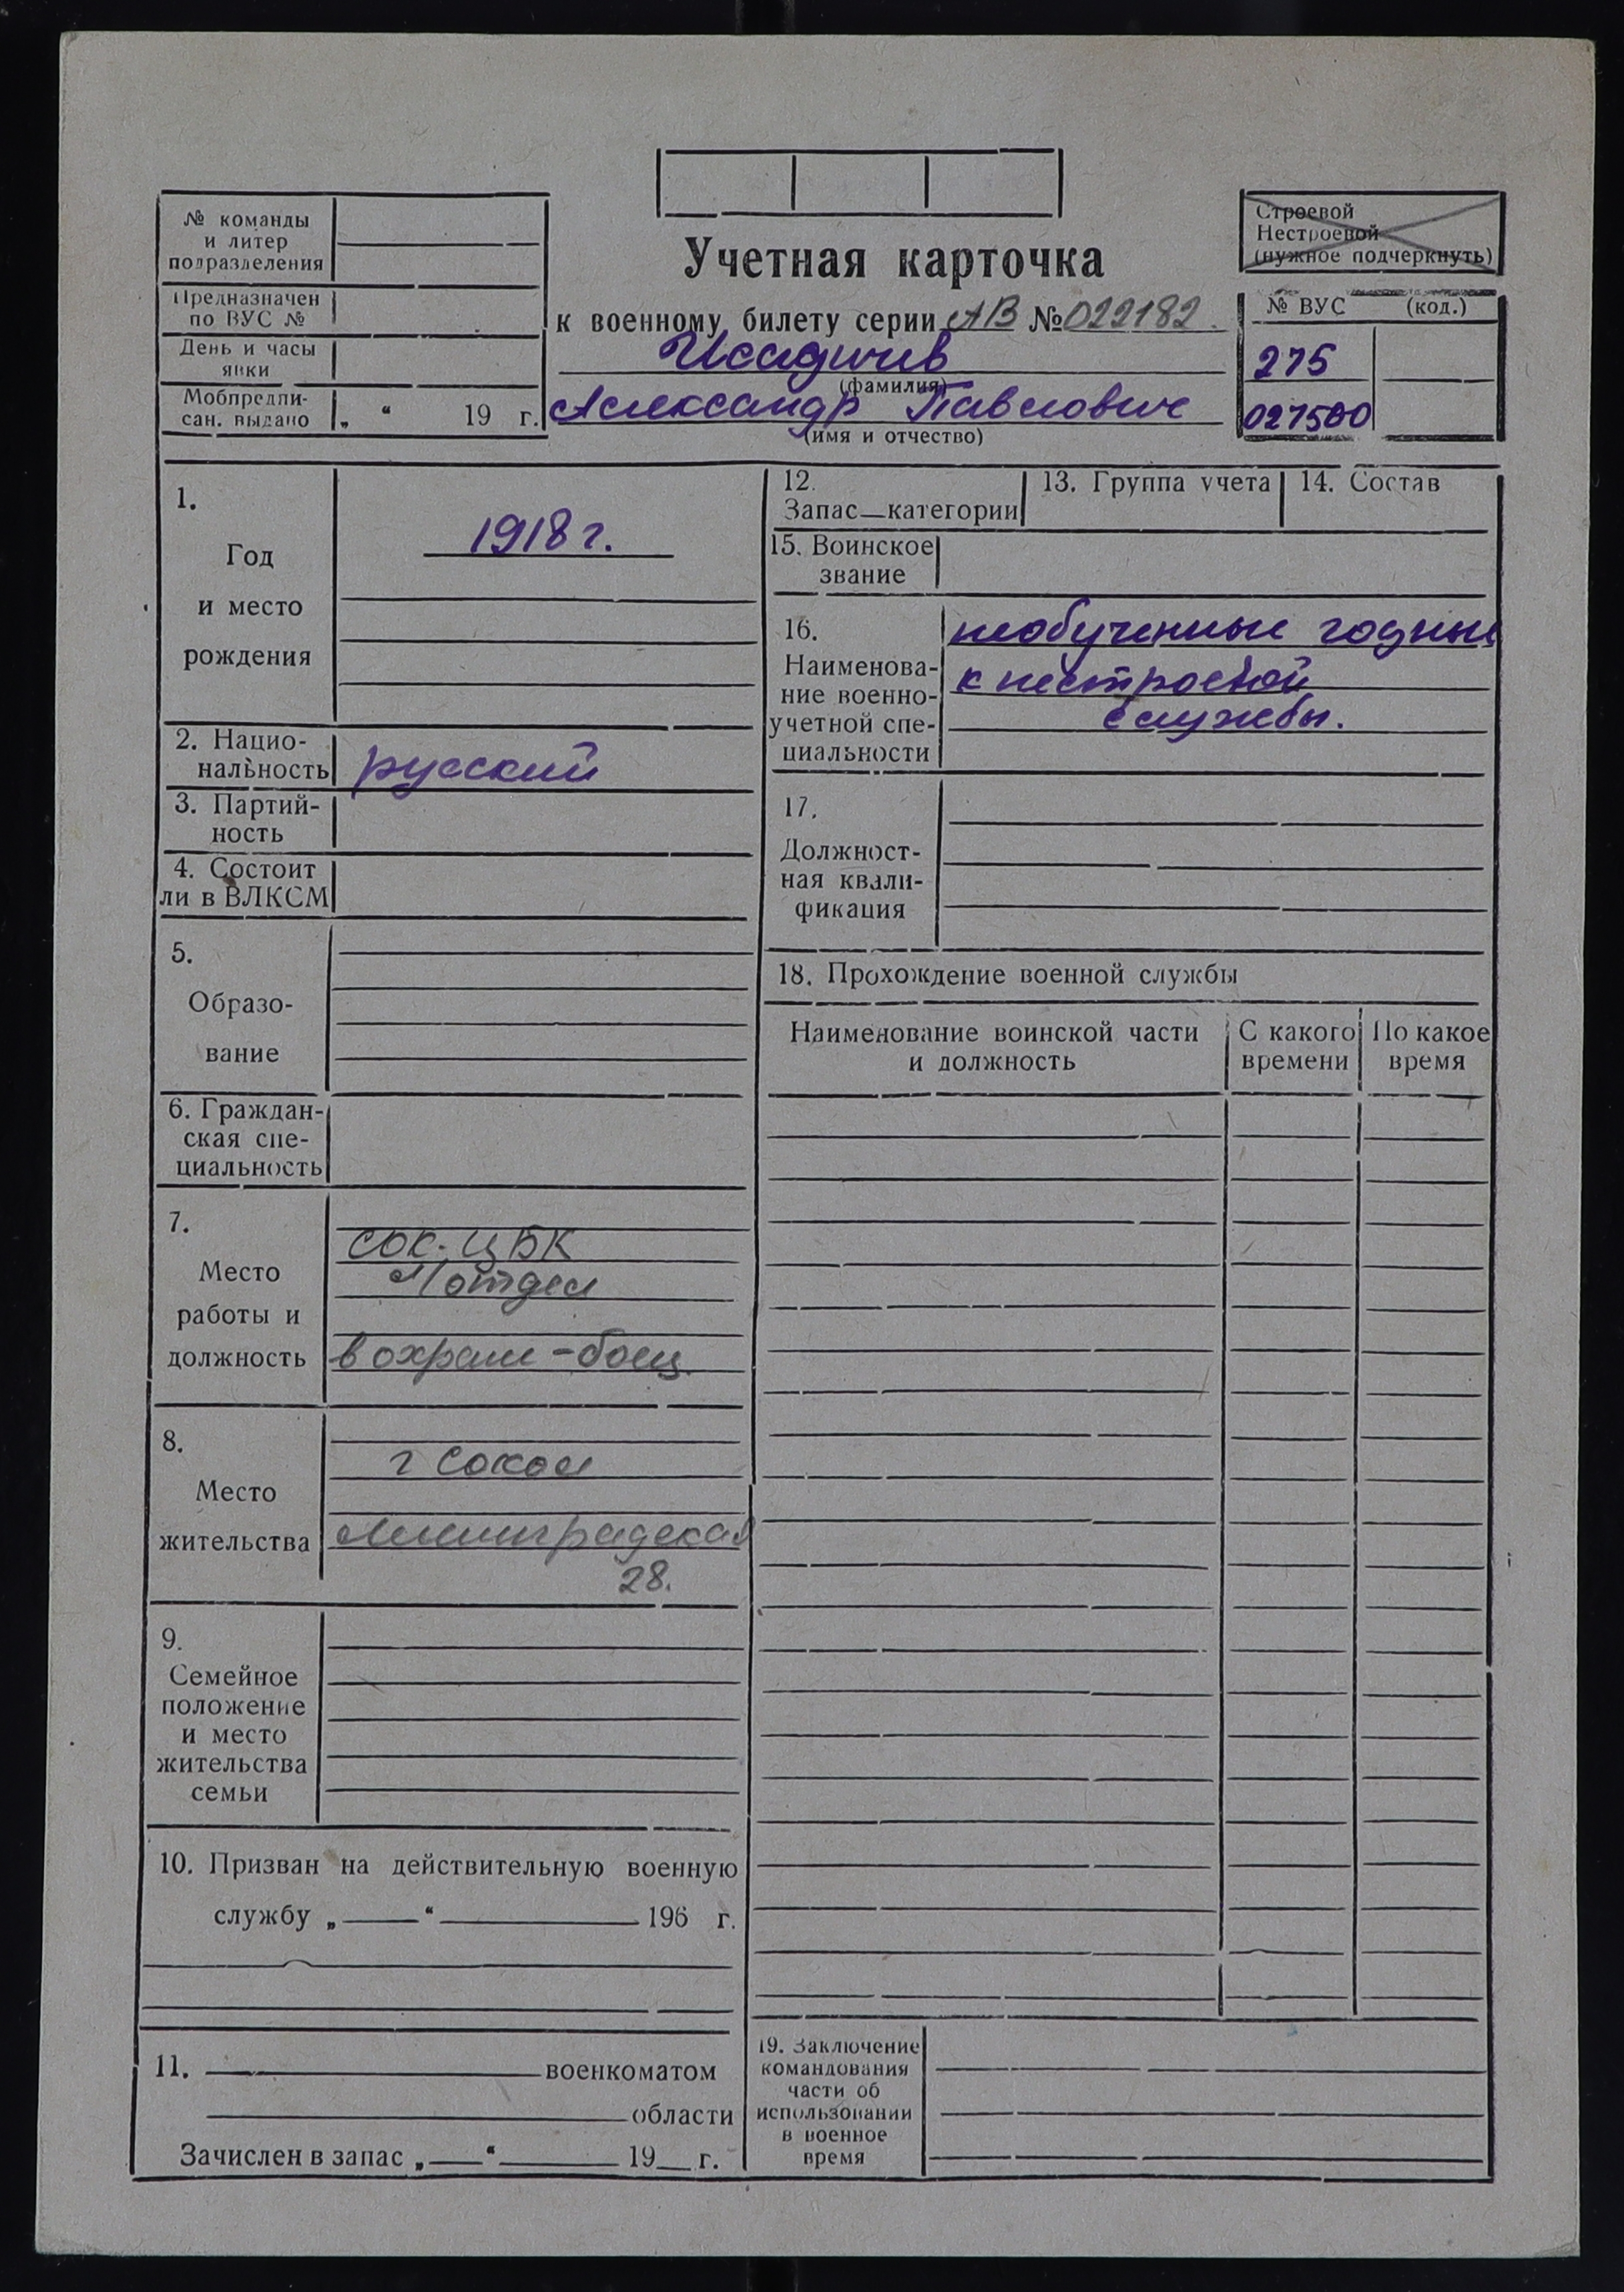 № команды
и литер
подразделения
Предназначен
по ВУС №
День и часы
явки
Мобпредпи-
сан. выдано „ “ 19 г.
Учетная карточка
к военному билету серии АВ № 022182.
Исадичев
(фамилия)
Александр Павлович
(имя и отчество)
Строевой
Нестроевой
(нужное подчеркнуть)
№ ВУС (код.)
275
027500
1.
Год
и место
рождения
1918 г.
2. Нацио-
нальность
русский
3. Партий-
ность
4. Состоит
ли в ВЛКСМ
5.
Образо-
вание
6. Граждан-
ская спе-
циальность
7.
Место
работы и
должность
сок. ЦБК
отдел
вохрам-боец.
8.
Место
жительства
г Сокол
Ленинградская
28.
9.
Семейное
положение
и место
жительства
семьи
10. Призван на действительную военную
службу „ “ 196 г.
11. военкоматом
области
Зачислен в запас „ “ 19 г.
12.
Запас—категории
13. Группа учета
14. Состав
15. Воинское
звание
16.
Наименова-
ние военно-
учетной спе-
циальности
необученный годный
к нестроевой
службы.
17.
Должност-
ная квали-
фикация
18. Прохождение военной службы
Наименование воинской части
и должность
С какого
времени
По какое
время
19. Заключение
командования
части об
использовании
в военное
время